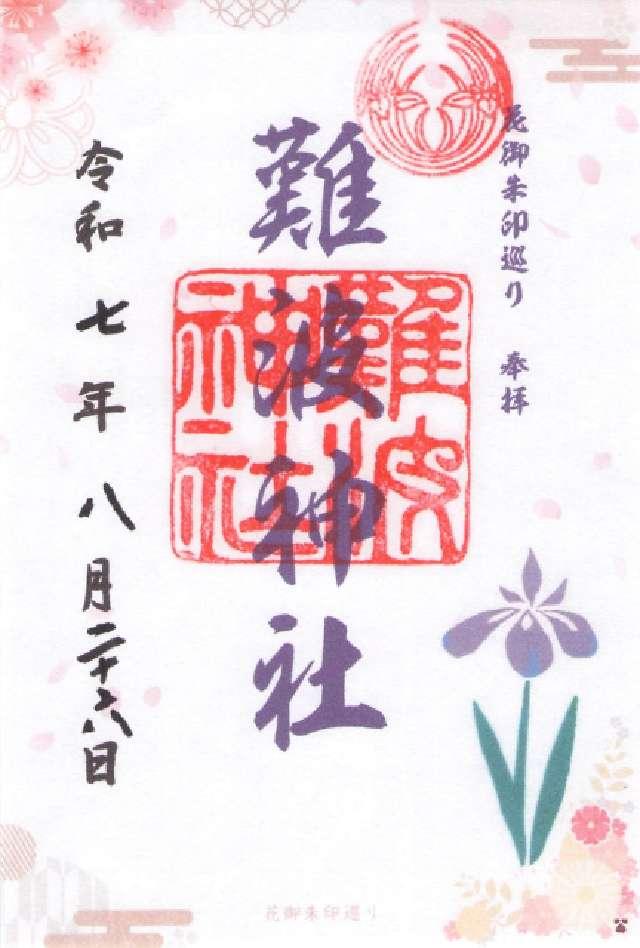 花御朱印巡り 奉拝
難波神社
難波神社
令和七年八月二十六日
花御朱印巡り